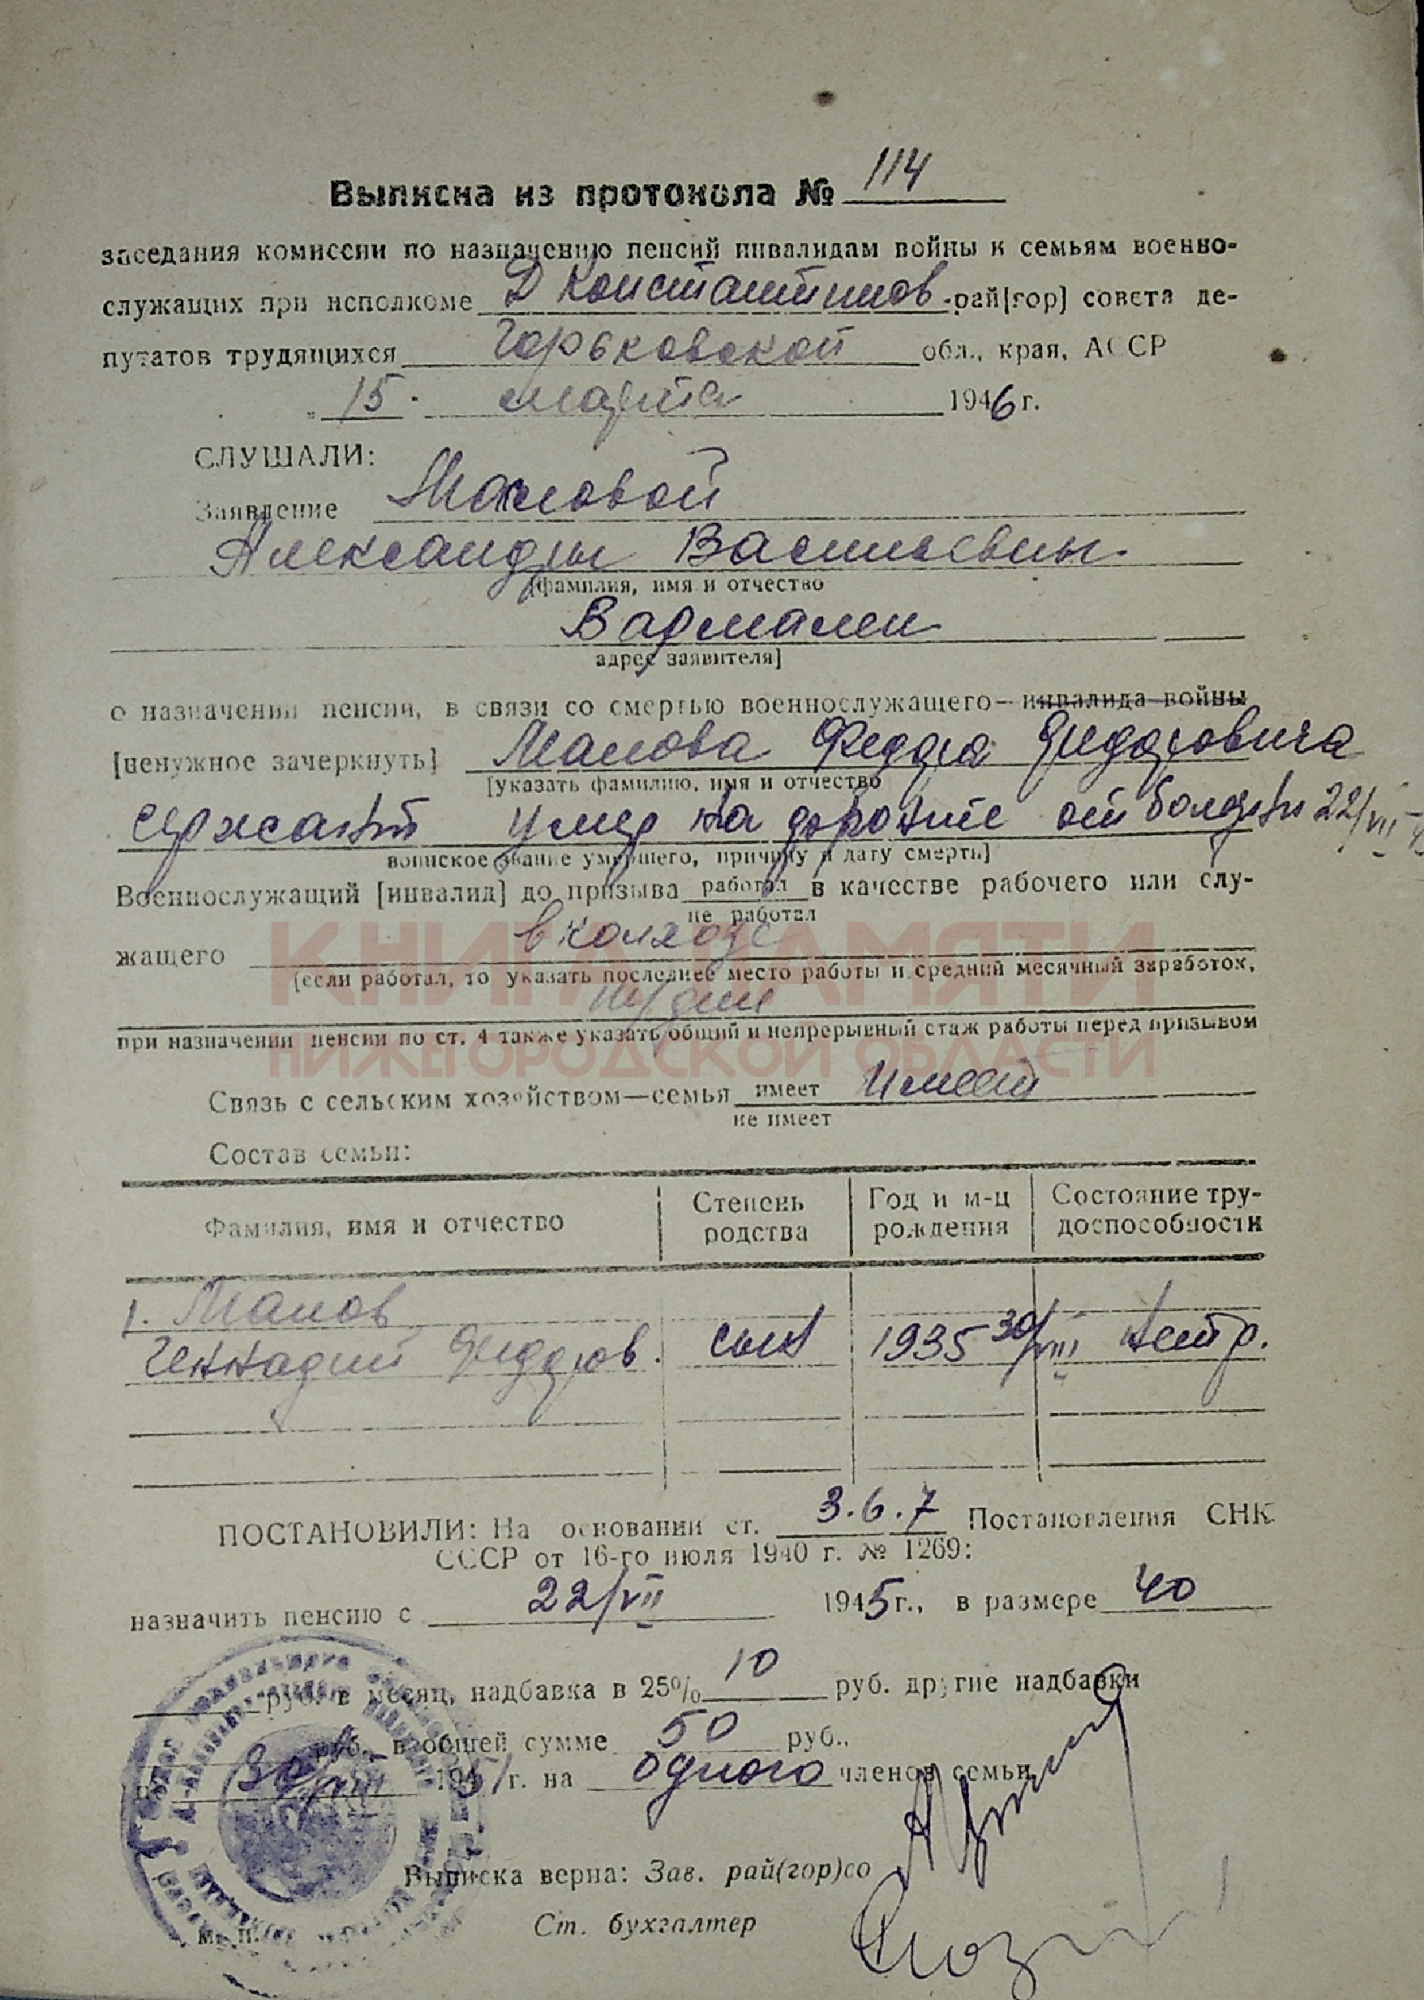 Выписка из протокола № 114
заседания комиссии по назначению пенсий инвалидам войны и семьям военно-
служащих при исполкоме Д Константинов. рай[гор] совета де-
путатов трудящихся Горьковской обл., края, АССР
„ 15. марта 1946 г.
СЛУШАЛИ:
Заявление Маловой
Александры Васильевны
[фамилия, имя и отчество
Вармалеи
адрес заявителя]
о назначении пенсии, в связи со смертью военнослужащего—инвалида войны
[ненужное зачеркнуть] Малова Федора Федоровича
[указать фамилию, имя и отчество
сержант умер на фронте от болезни 22/VII
воинское звание умершего, причину и дату смерти]
Военнослужащий [инвалид] до призыва работал в качестве рабочего или слу-
не работал
жащего в колхозе
[если работал, то указать последнее место работы и средний месячный заработок,
при назначении пенсии по ст. 4 также указать общий и непрерывный стаж работы перед призывом
КНИГА ПАМЯТИ
НИЖЕГОРОДСКОЙ ОБЛАСТИ
Связь с сельским хозяйством—семья имеет имеет
не имеет
Состав семьи:
Фамилия, имя и отчество Степень родства Год и м-ц рождения Состояние тру-доспособности
1. Малов
Геннадий Федоров. сын 1935 30/VIII нетр.
ПОСТАНОВИЛИ: На основании ст. 3.6.7 Постановления СНК
СССР от 16-го июля 1940 г. № 1269:
назначить пенсию с 22/VII 1945 г., в размере 40
руб. в месяц, надбавка в 25% 10 руб. другие надбавки
руб. в общей сумме 50 руб.,
по 30/VIII 1951 г. на одного членов семьи
Выписка верна: Зав. рай(гор)со
Ст. бухгалтер
М. П.